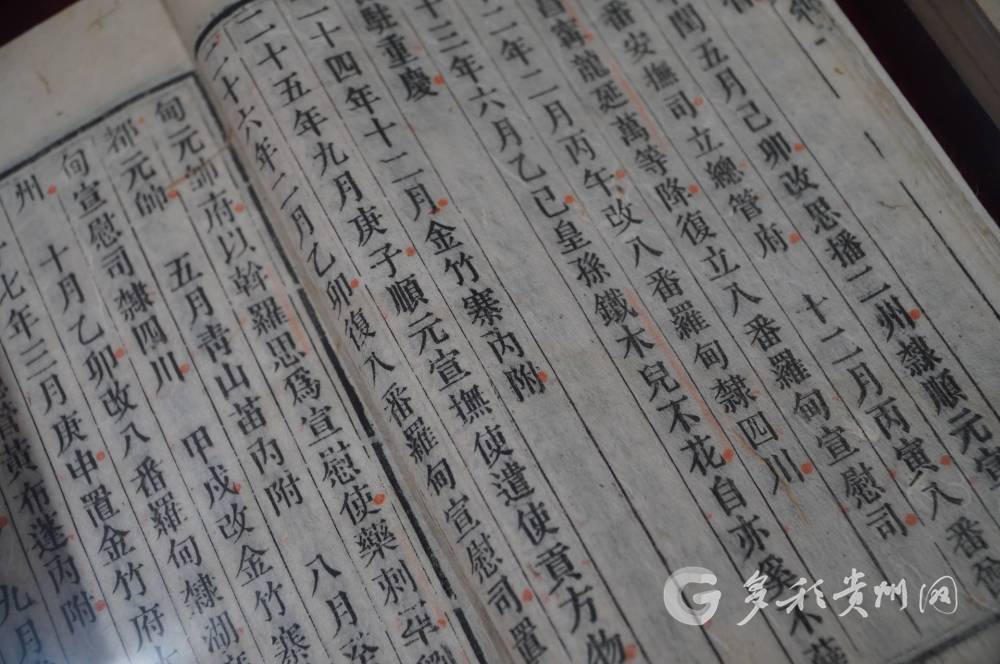 閏五月己卯改思播二州隸順元宣
番安撫司立總管府　十二月丙寅八番
昌甯龍延萬等降復立八番羅甸宣慰司
二年二月丙午改八番羅甸隸四川
十三年六月乙巳皇孫鐵木兒不花自亦奚不薛
駐重慶
二十四年十二月金竹寨內附
二十五年九月庚子順元宣撫使遣使貢方物
二十六年二月乙卯復八番羅甸宣慰司置
甸元帥府以斡羅思爲宣慰使藥刺罕
都元帥　五月靑山苗內附　八月
甸宣慰司隸四川　甲戌改金竹寨
州　十月乙卯改八番羅甸隸湖
十七年三月庚申置金竹府
黃布蓬內附　九月
多彩贵州网